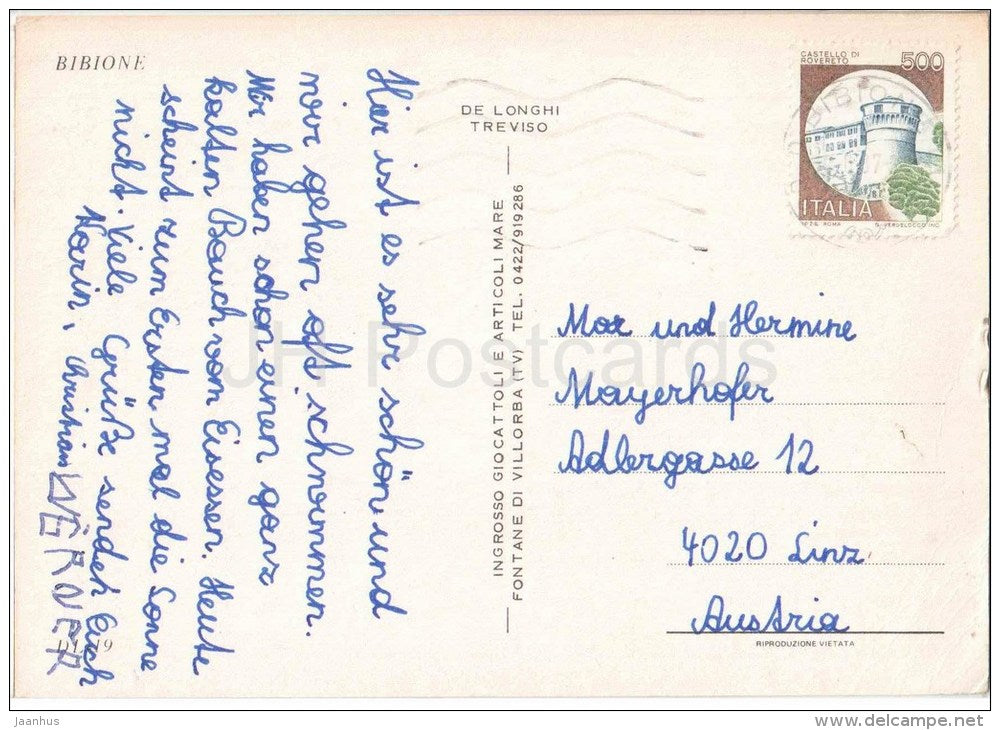 BIBIONE
Hier ist es sehr schön und
wir gehen oft schwimmen.
Wir haben schon einen ganz
kalten Bauch vom Eisessen. Heute
scheint zum Ersten mal die Sonne
nicht. Viele Grüße sendet Euch
Karin, Christian WERNER
DL 19
DE LONGHI
TREVISO
INGROSSO GIOCATTOLI E ARTICOLI MARE
FONTANE DI VILLORBA (TV) TEL. 0422/919286
CASTELLO DI
ROVERETO
500
ITALIA
I.P.Z.S. ROMA
Max und Hermine
Mayerhofer
Adlergasse 12
4020 Linz
Austria
RIPRODUZIONE VIETATA
JH Postcards
jaanhus
www.delcampe.net